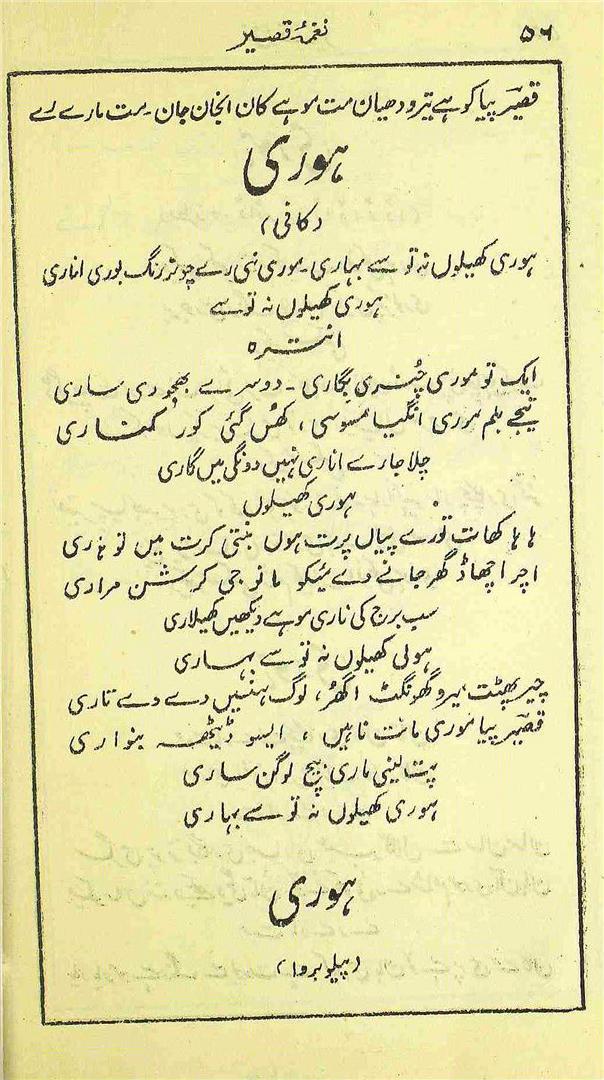 ۵۶
نغمۂ قصیر
قصیر پیا کو ہے تیرو دھیان مت موہے کان انجان جان۔ مت مارے رے
ہوری
(کافی)
ہوری کھیلوں نہ تو سے بہاری۔ موری نئی رے چونر رنگ بوری اناری
ہوری کھیلوں نہ تو سے
انترہ
ایک تو موری چُنری بگاری۔ دوسرے بھجو دی ساری
تیجے بلم موری انگیا مسوسی، کھُس گئی کور کناری
چلا جا رے اناری نہیں دونگی میں گاری
ہوری کھیلوں
ہا ہا کھات تورے پیاں پرت ہوں بنتی کرت میں تو ہری
اچرا چھاڈ گھر جانے دے میکو مانو جی کرشن مراری
سب برج کی ناری موہے دیکھیں کھیلاری
ہولی کھیلوں نہ تو سے بہاری
چیر پھٹت میرو گھونگٹ اگھر، لوگ ہنسیں دے دے تاری
قصیر پیا موری مانت ناہیں، ایسو ڈیٹھ بنواری
پت لینی ماری بیچ لوگن ساری
ہوری کھیلوں نہ تو سے بہاری
ہوری
(پیلو بروا)